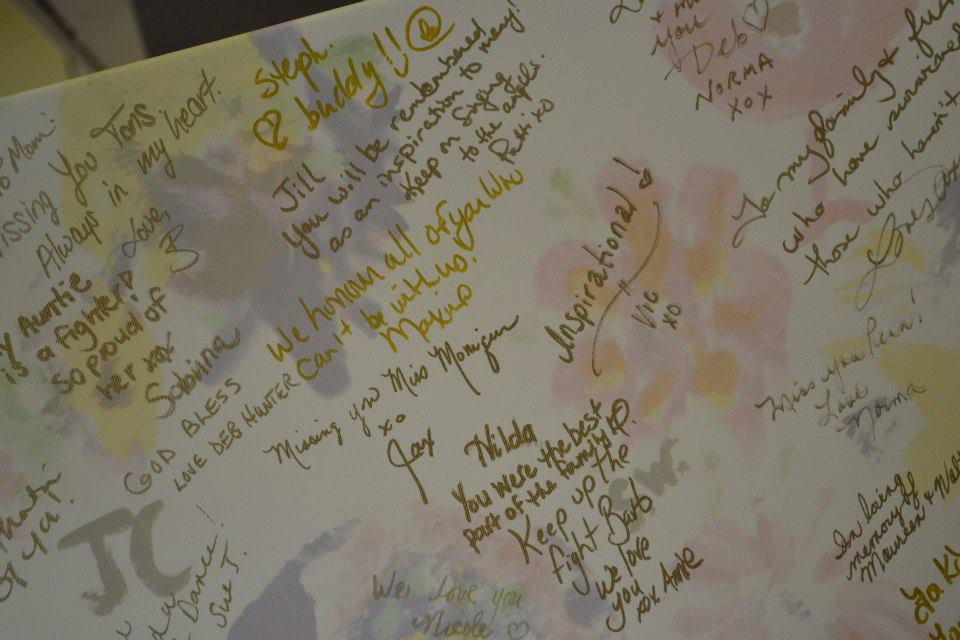 Missing You Tons
Always in my heart.
Love,
B
Steph.
♡ buddy!!
Jill
You will be remembered
as an inspiration to many!
Keep on Singing
to the angels.
Patti xo
you
Deb ♡
NORMA
XOX
To my family &
who have survived
those who haven't
Auntie
is a fighter!
So proud of
her xox
Sabrina
We honour all of you who
can't be with us!
Inspirational!
Vio
xo
GOD BLESS
LOVE DEB HUNTER
Missing you Miss Monique
xo
Jax
Miss you Pam!
Love
Norma
Nilda
You were the best
part of the family xo.
Keep up the
fight Barb
We love
you
xox Anne
SW.
JC
Dance!
Sue J.
We Love you
Nicole ♡
In loving
memory of
Maureen &